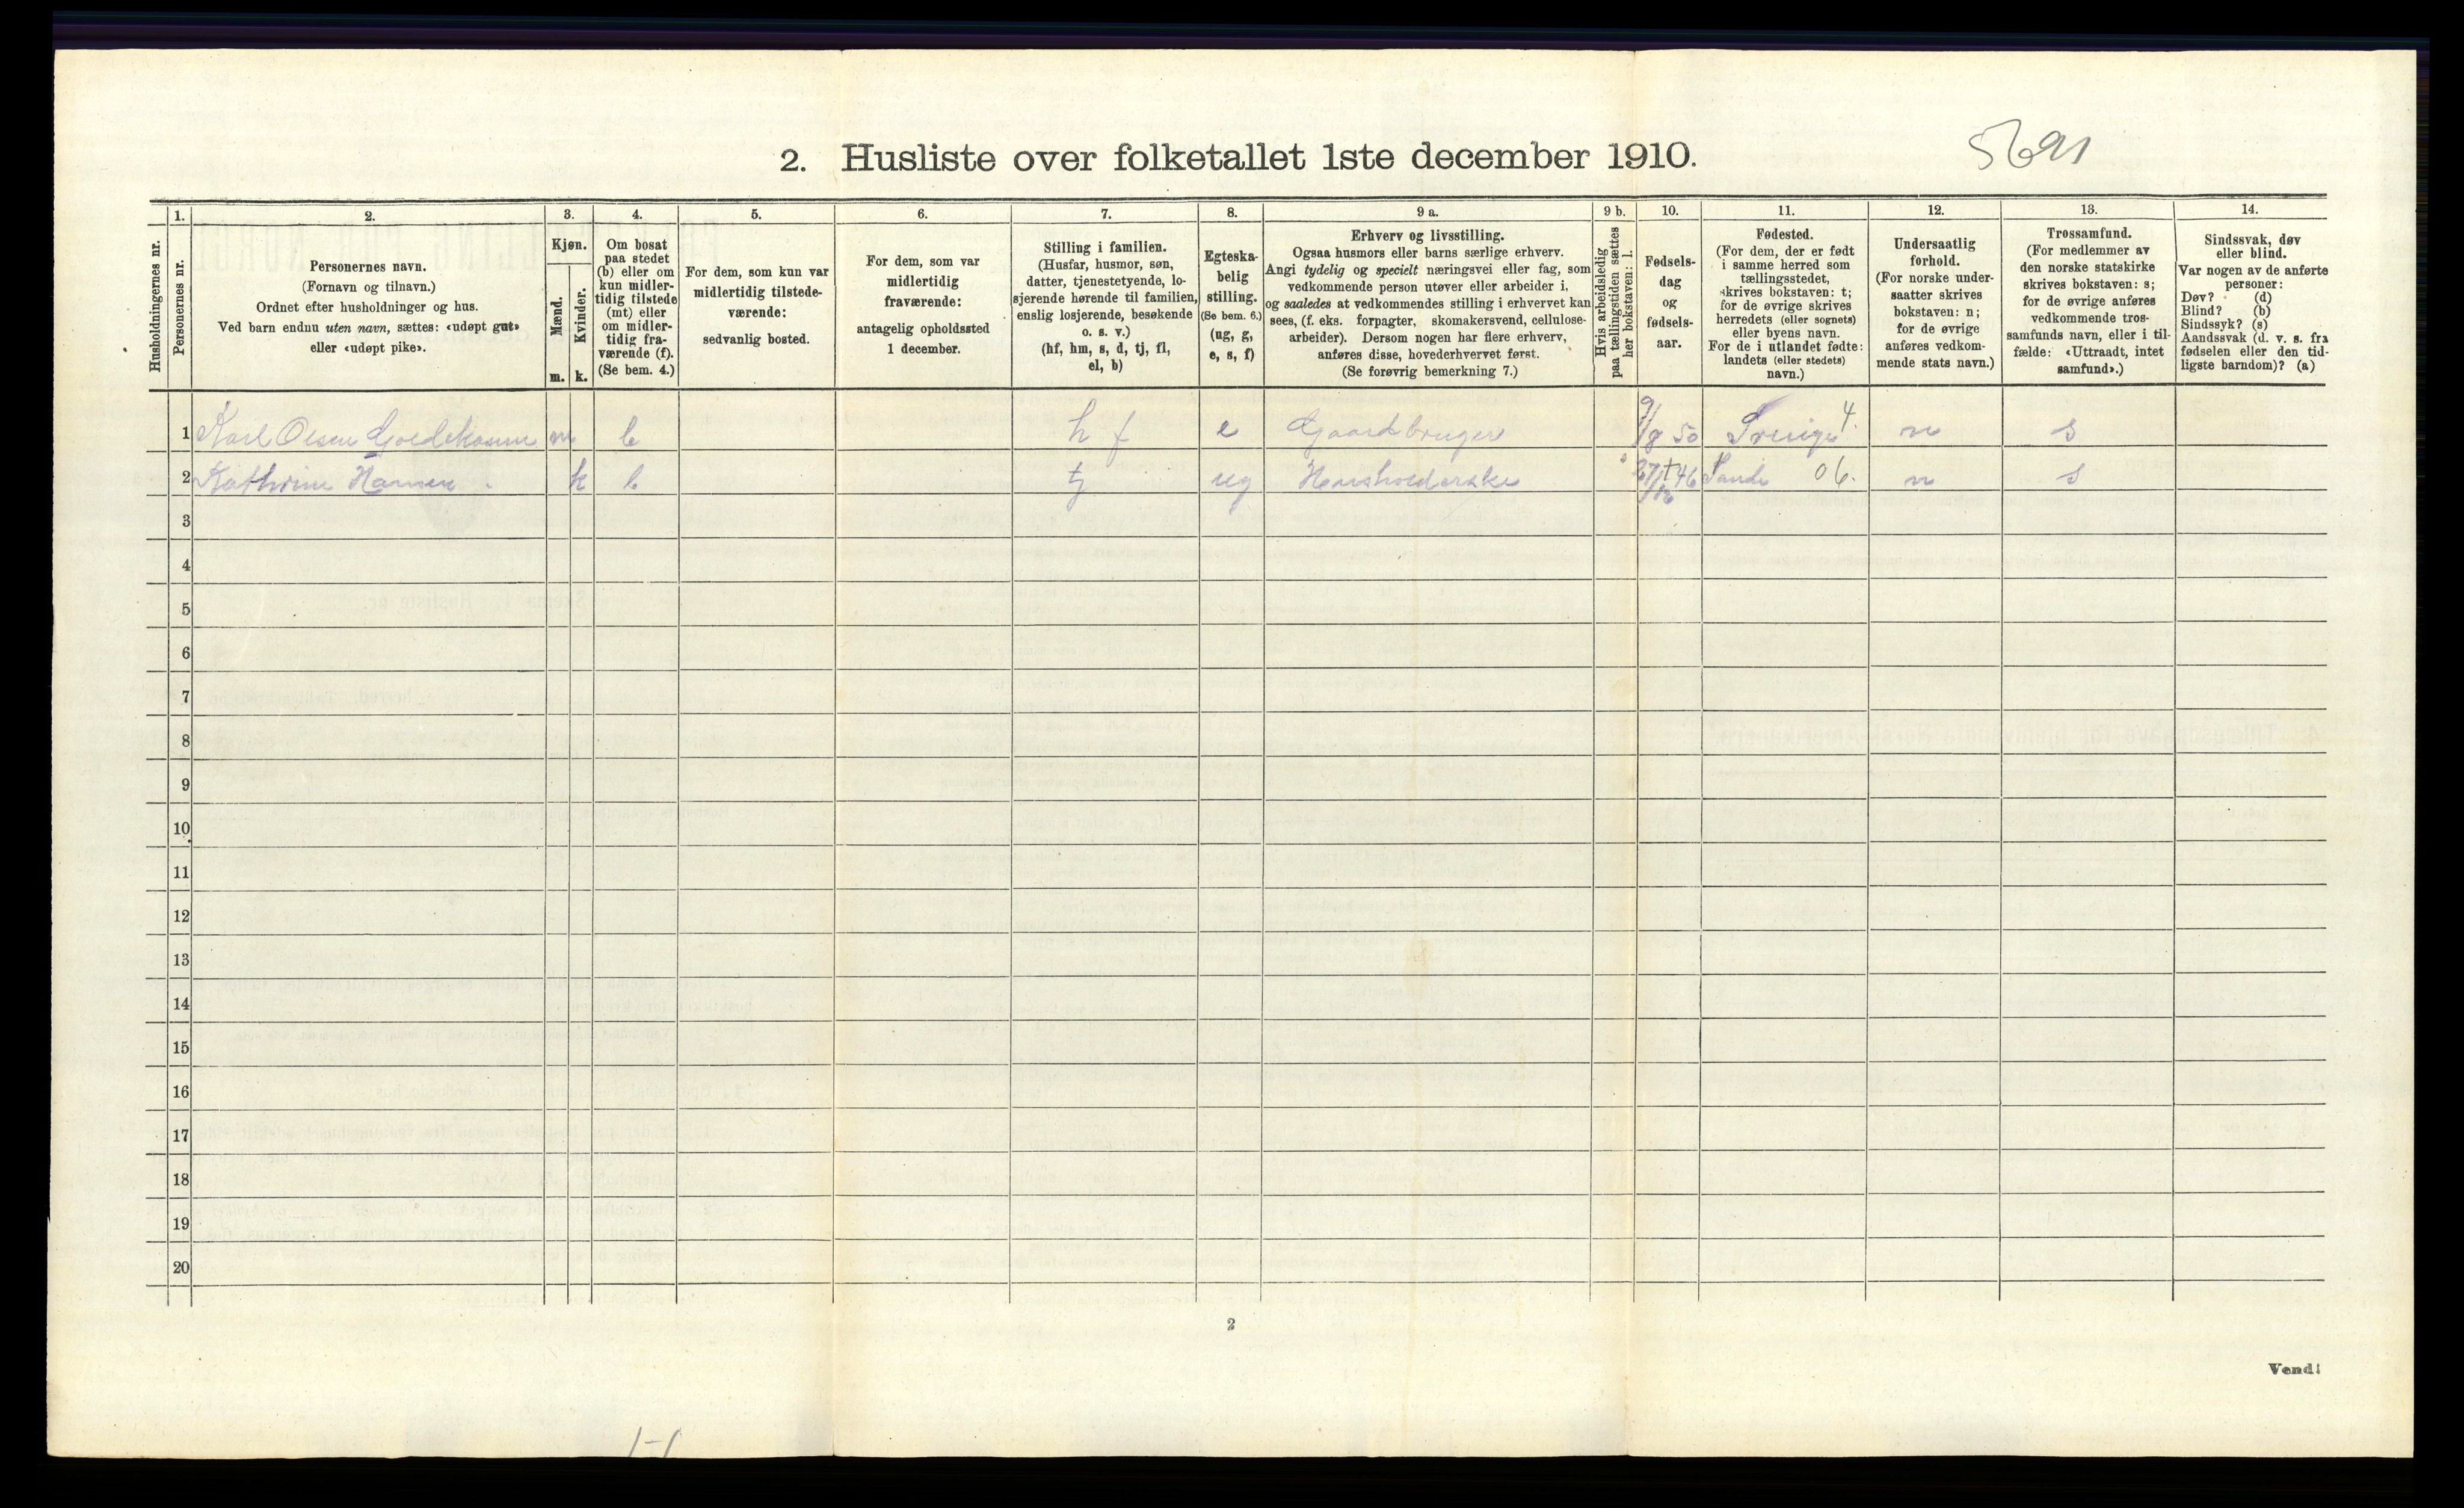 2. Husliste over folketallet 1ste december 1910.
5691
Husholdningernes nr.
1.
Personernes nr.
2.
Personernes navn.
(Fornavn og tilnavn.)
Ordnet efter husholdninger og hus.
Ved barn endnu uten navn, sættes: «udøpt gut»
eller «udøpt pike».
3.
Kjøn.
Mænd.
m.
Kvinder.
k.
4.
Om bosat
paa stedet
(b) eller om
kun midler-
tidig tilstede
(mt) eller
om midler-
tidig fra-
værende (f).
(Se bem. 4.)
5.
For dem, som kun var
midlertidig tilstede-
værende:
sedvanlig bosted.
6.
For dem, som var
midlertidig
fraværende:
antagelig opholdssted
1 december.
7.
Stilling i familien.
(Husfar, husmor, søn,
datter, tjenestetyende, lo-
sjerende hørende til familien,
enslig losjerende, besøkende
o. s. v.)
(hf, hm, s, d, tj, fl,
el, b)
8.
Egteska-
belig
stilling.
(Se bem. 6.)
(ug, g,
e, s, f)
9 a.
Erhverv og livsstilling.
Ogsaa husmors eller barns særlige erhverv.
Angi tydelig og specielt næringsvei eller fag, som
vedkommende person utøver eller arbeider i,
og saaledes at vedkommendes stilling i erhvervet kan
sees, (f. eks. forpagter, skomakersvend, cellulose-
arbeider). Dersom nogen har flere erhverv,
anføres disse, hovederhvervet først.
(Se forøvrig bemerkning 7.)
9 b.
Hvis arbeidsledig
paa tællingstiden sættes
her bokstaven: l.
10.
Fødsels-
dag
og
fødsels-
aar.
11.
Fødested.
(For dem, der er født
i samme herred som
tællingsstedet,
skrives bokstaven: t;
for de øvrige skrives
herredets (eller sognets)
eller byens navn.
For de i utlandet fødte:
landets (eller stedets)
navn.)
12.
Undersaatlig
forhold.
(For norske under-
saatter skrives
bokstaven: n;
for de øvrige
anføres vedkom-
mende stats navn.)
13.
Trossamfund.
(For medlemmer av
den norske statskirke
skrives bokstaven: s;
for de øvrige anføres
vedkommende tros-
samfunds navn, eller i til-
fælde: «Uttraadt, intet
samfund».)
14.
Sindssvak, døv
eller blind.
Var nogen av de anførte
personer:
Døv? (d)
Blind? (b)
Sindssyk? (s)
Aandssvak (d. v. s. fra
fødselen eller den tid-
ligste barndom)? (a)
1 Karl Olsen m b h f e Gaardbruger 9/8 50 Sverige 4. n s
2 Kathrine Hansen k b tj ug Husholderske 27/12 46 Sande 06. n s
3
4
5
6
7
8
9
10
11
12
13
14
15
16
17
18
19
20
2
Vend!
1-1